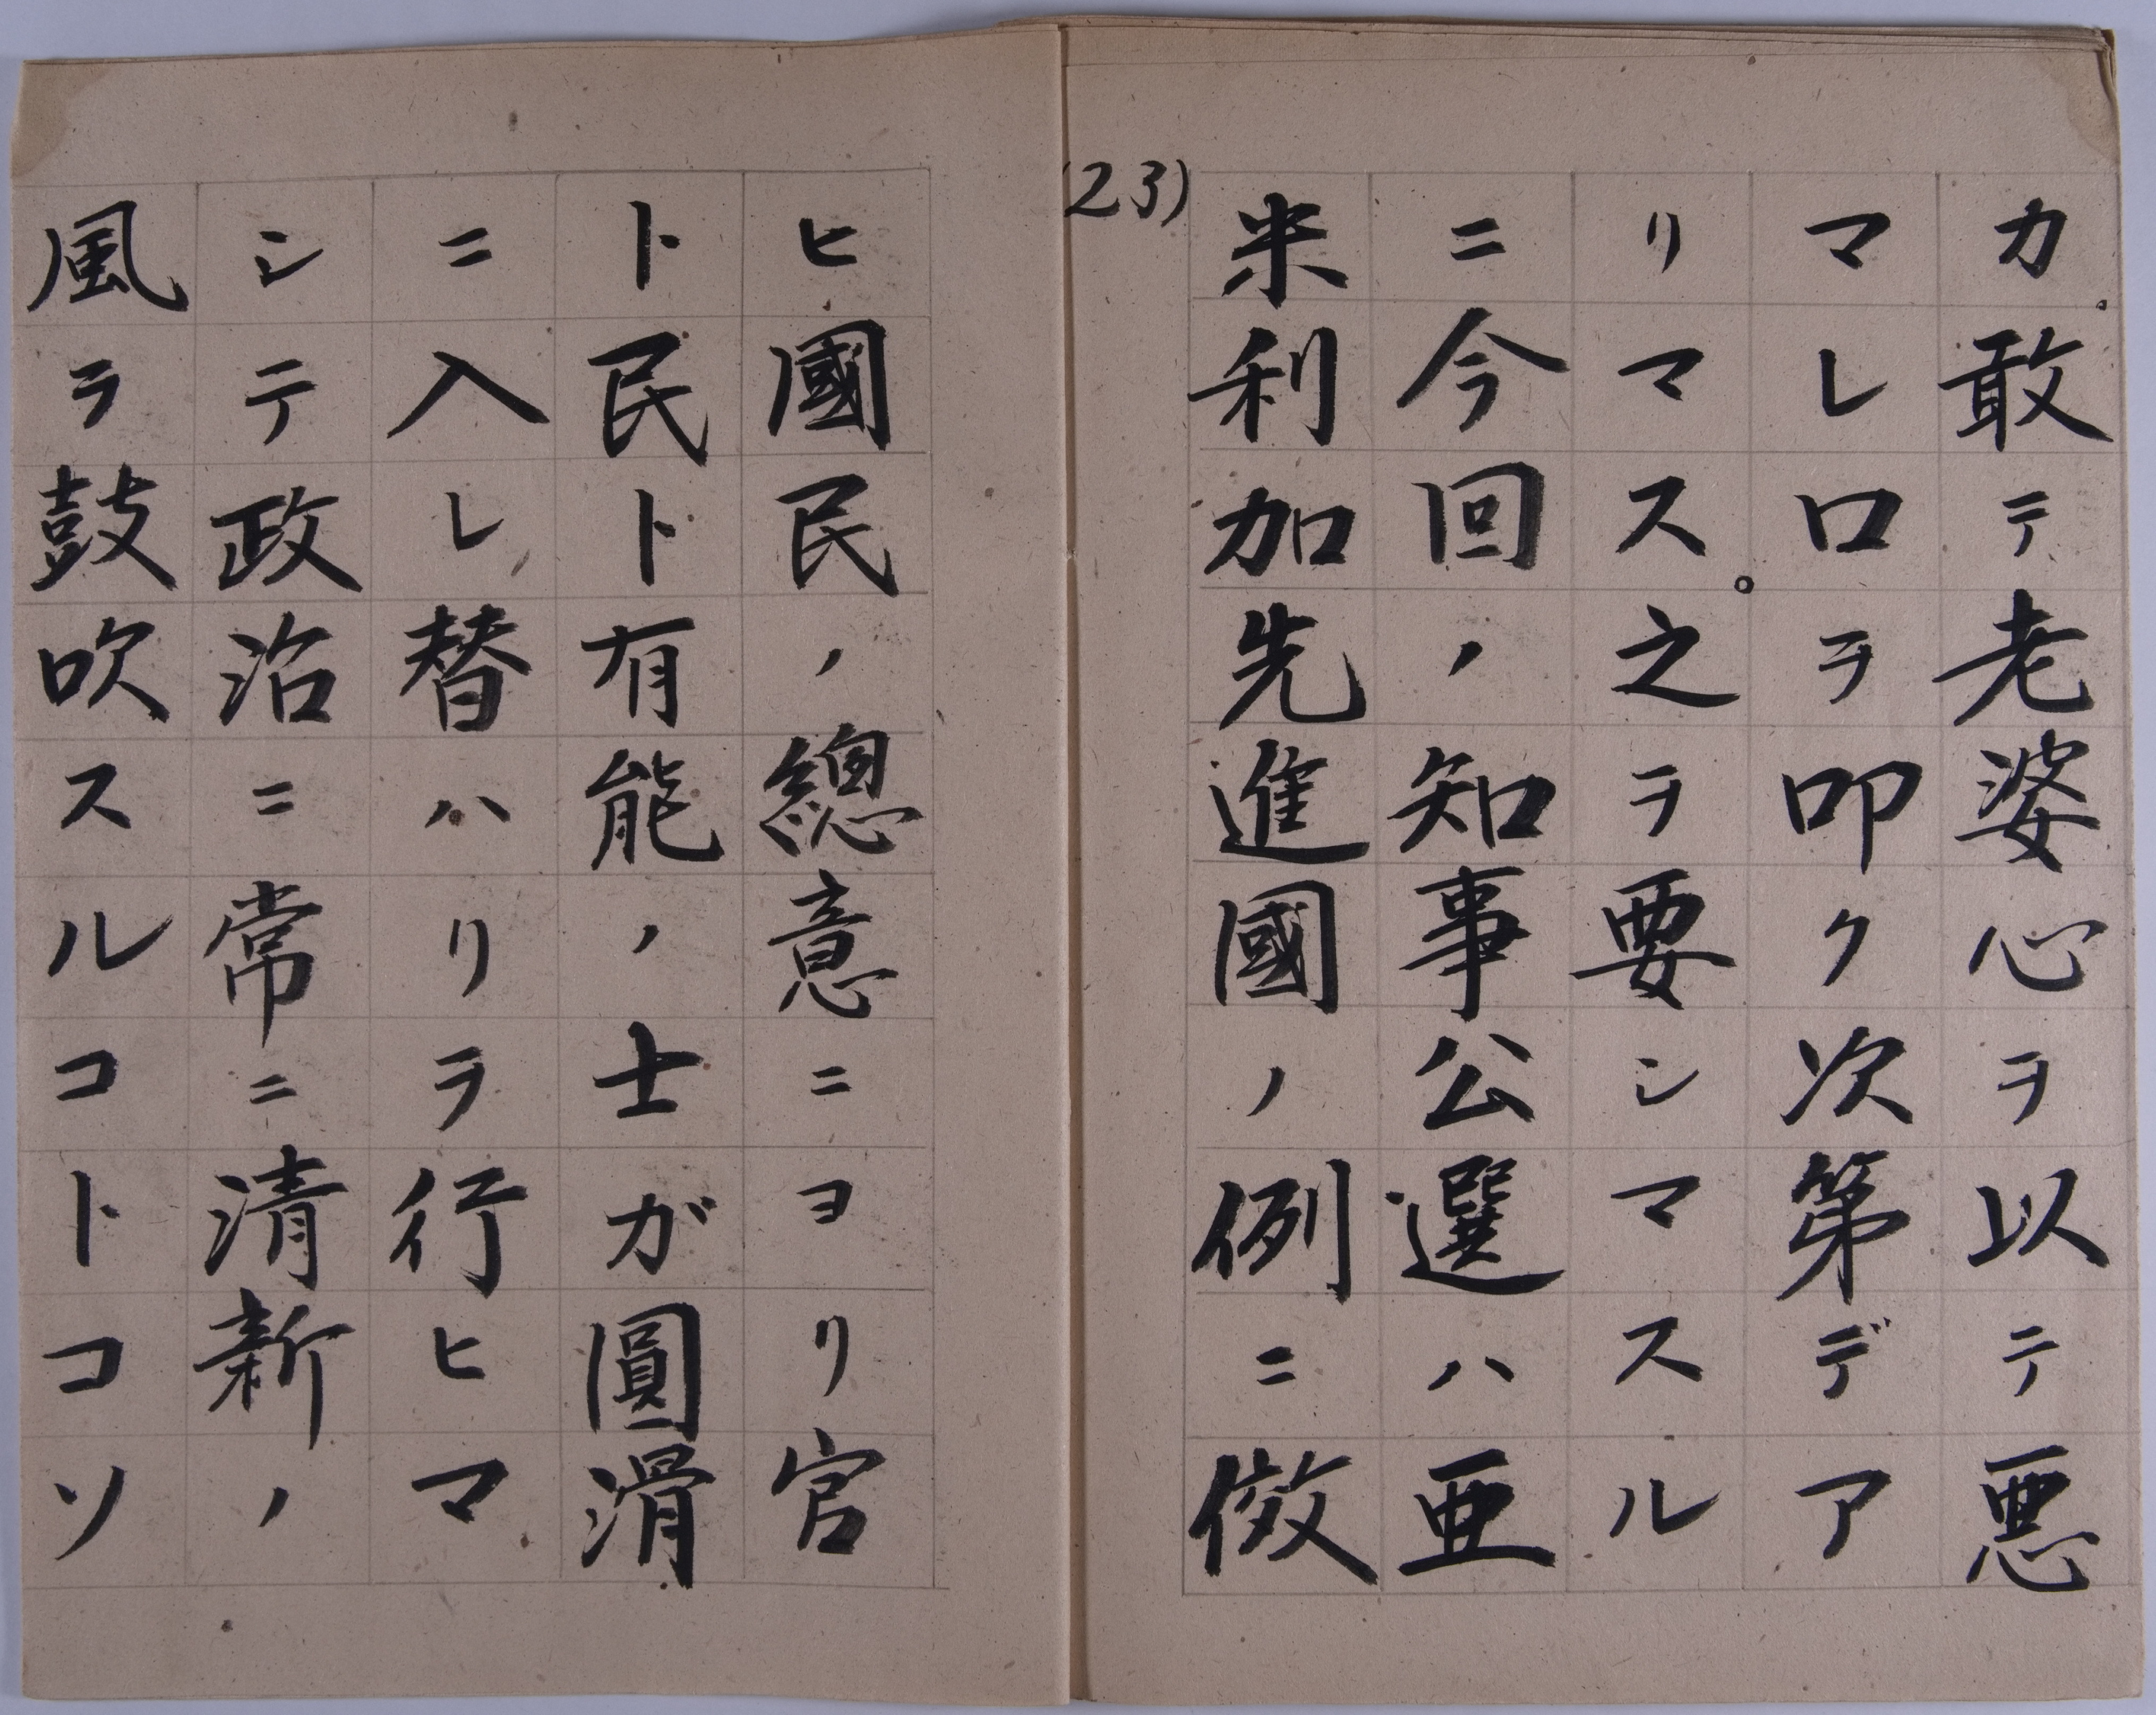 カ。敢テ老婆心ヲ以テ悪
マレ口ヲ叩ク次第デア
リマス。之ヲ要シマスル
ニ今回ノ知事公選ハ亜
米利加先進國ノ例ニ倣
(23)
ヒ國民ノ總意ニヨリ官
ト民ト有能ノ士ガ圓滑
ニ入レ替ハリヲ行ヒマ
シテ政治ニ常ニ清新ノ
風ヲ鼓吹スルコトコソ